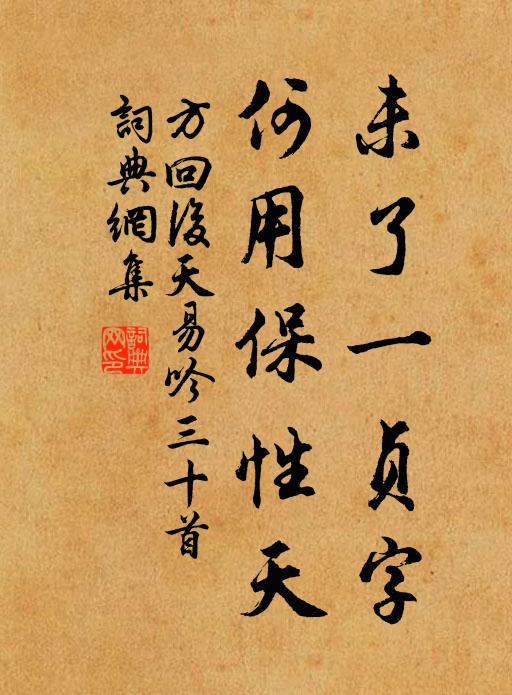 未了一貞字
何用保性天
方回後天易吟三十首
詞典網集
詞典網印